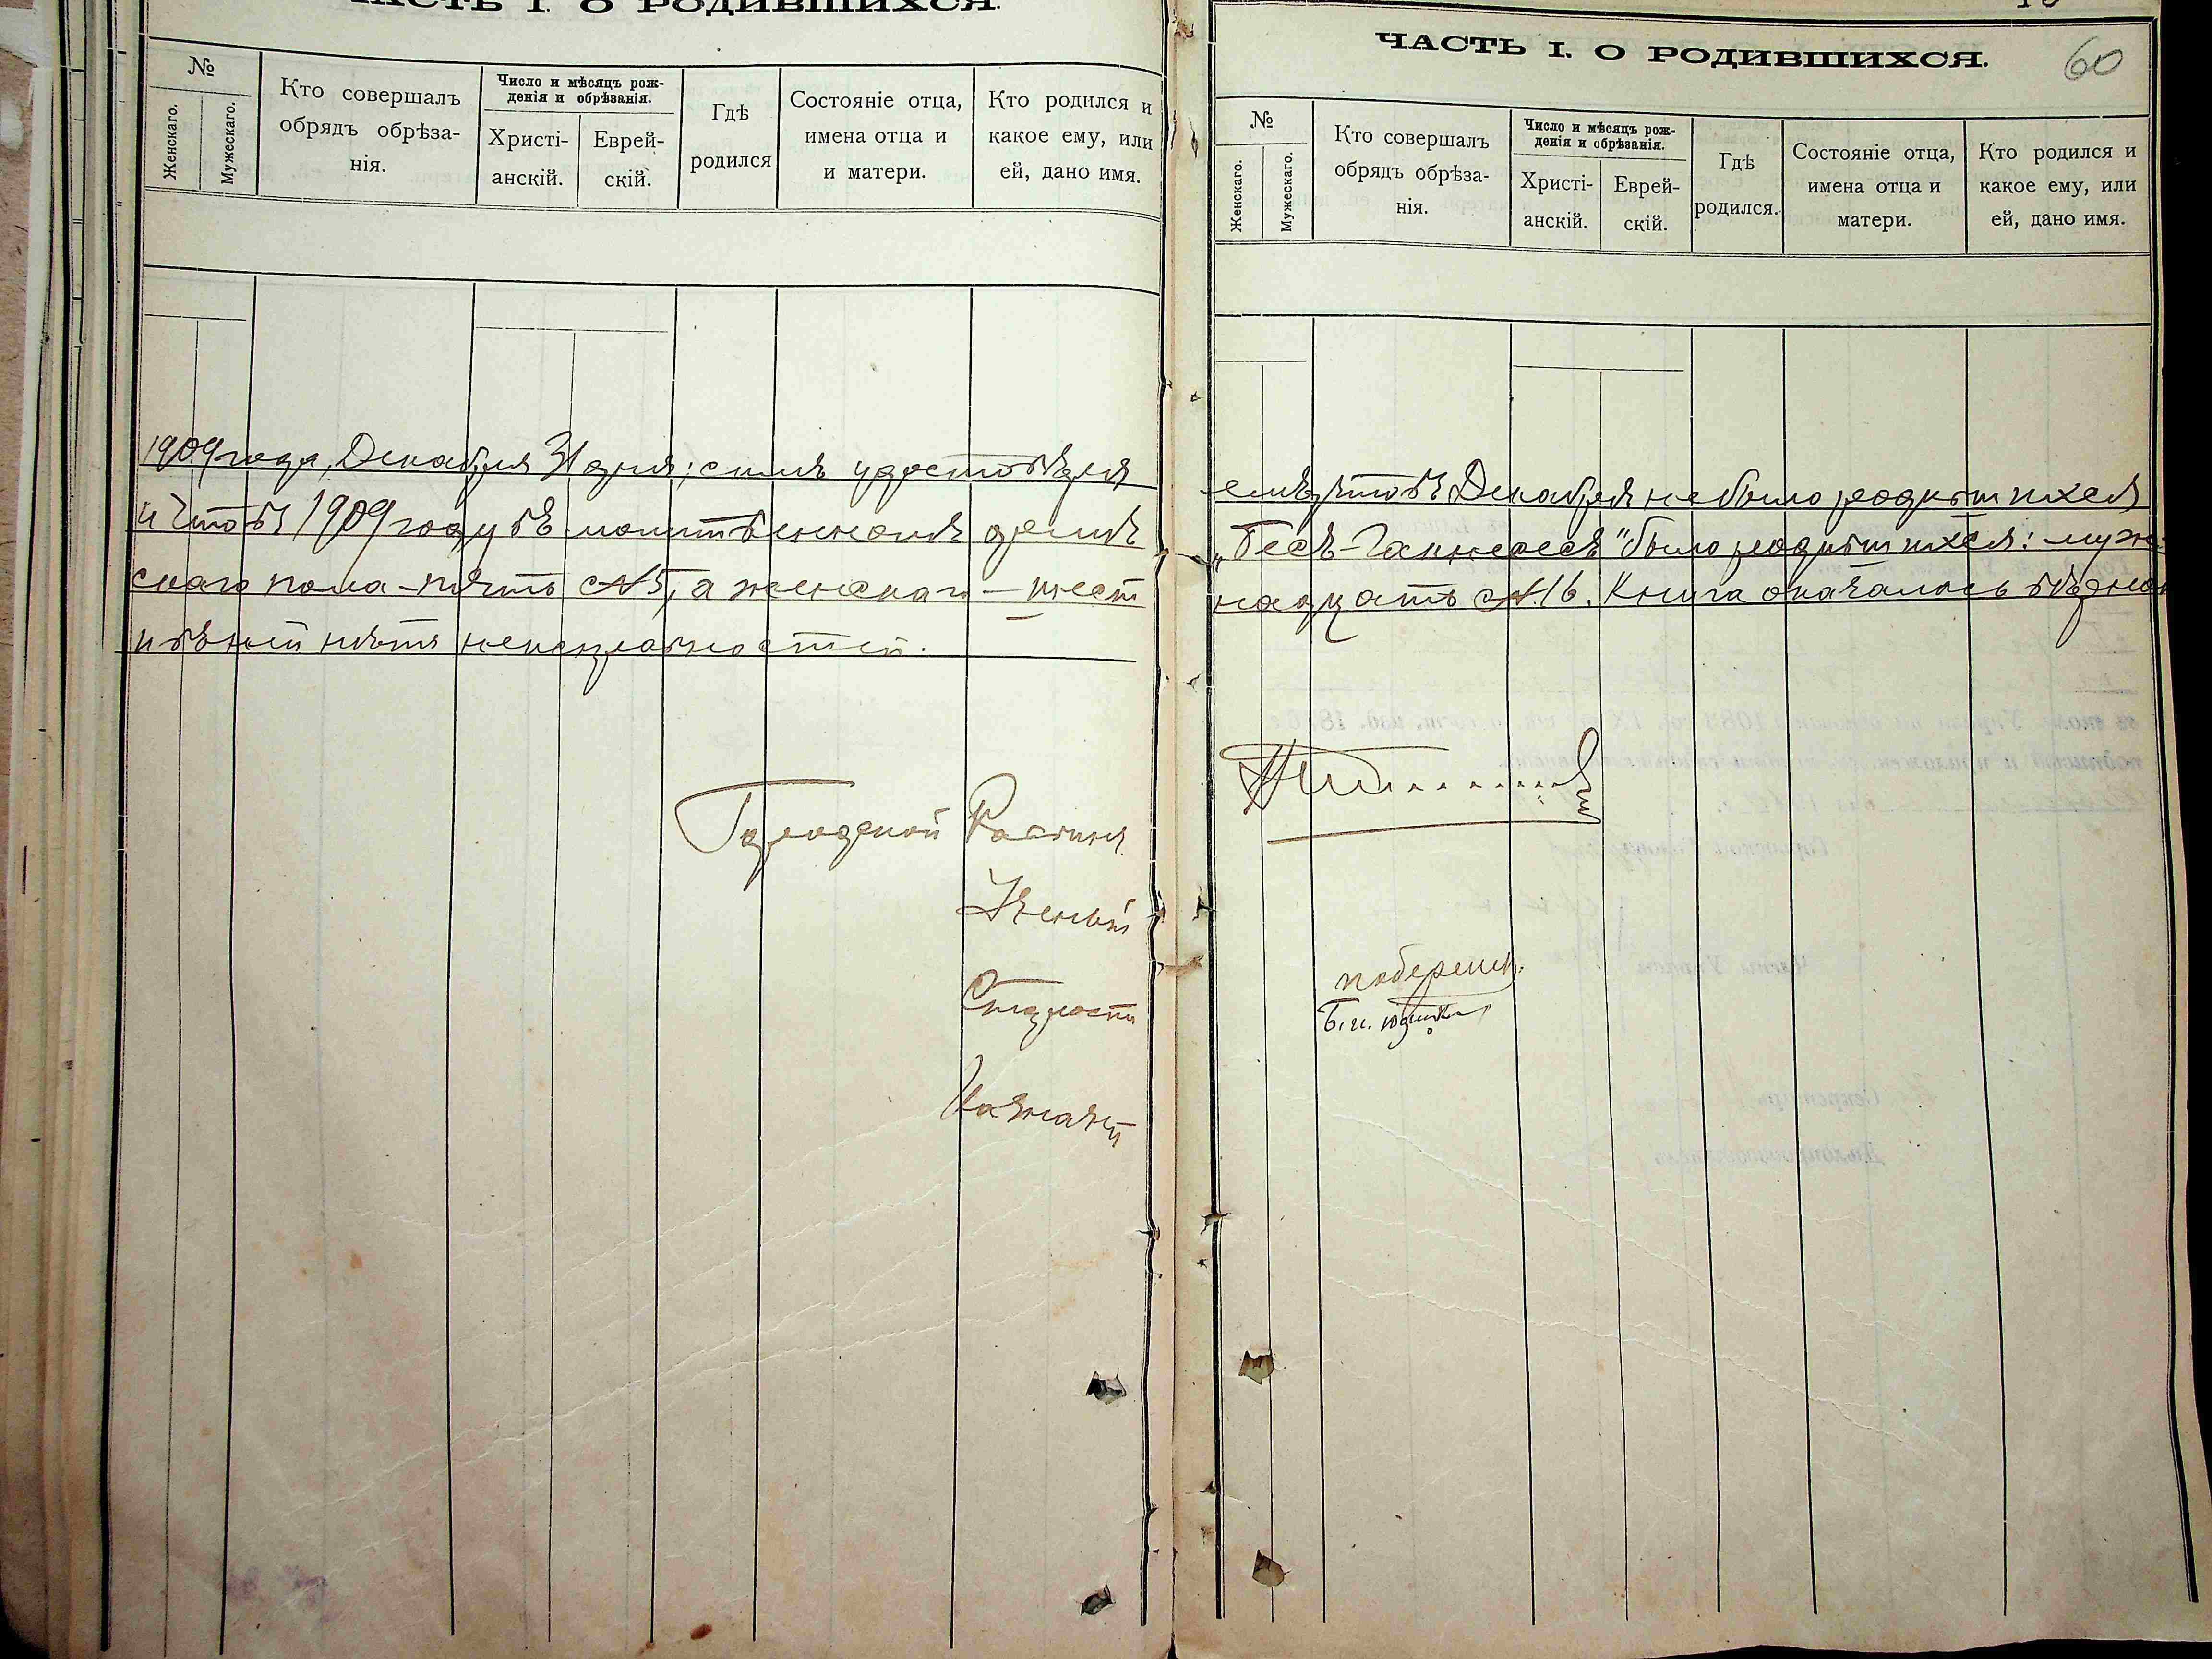 ЧАСТЬ I. О РОДИВШИХСЯ.
№
Женскаго.
Мужескаго.
Кто совершалъ
обрядъ обрѣза-
нія.
Число и мѣсяцъ рож-
денія и обрѣзанія.
Христі-
анскій.
Еврей-
скій.
Гдѣ
родился
Состояніе отца,
имена отца и
и матери.
Кто родился и
какое ему, или
ей, дано имя.
1909 года, Декабря 31 дня; симъ удостовѣря
и что въ 1909 году въ молитвенномъ домѣ
скаго пола - пять №5, а женскаго - шест
и въ ней нѣтъ неисправностей.
Городской Раввинъ
Ученый
Староста
Казначей
60
ЧАСТЬ I. О РОДИВШИХСЯ.
№
Женскаго.
Мужескаго.
Кто совершалъ
обрядъ обрѣза-
нія.
Число и мѣсяцъ рож-
денія и обрѣзанія.
Христі-
анскій.
Еврей-
скій.
Гдѣ
родился.
Состояніе отца,
имена отца и
матери.
Кто родился и
какое ему, или
ей, дано имя.
емъ, что въ Декабрѣ не было родившихся
„Бесъ-Гакнесесъ" было родившихся: муж-
надцать №16. Книга оказалась вѣрною